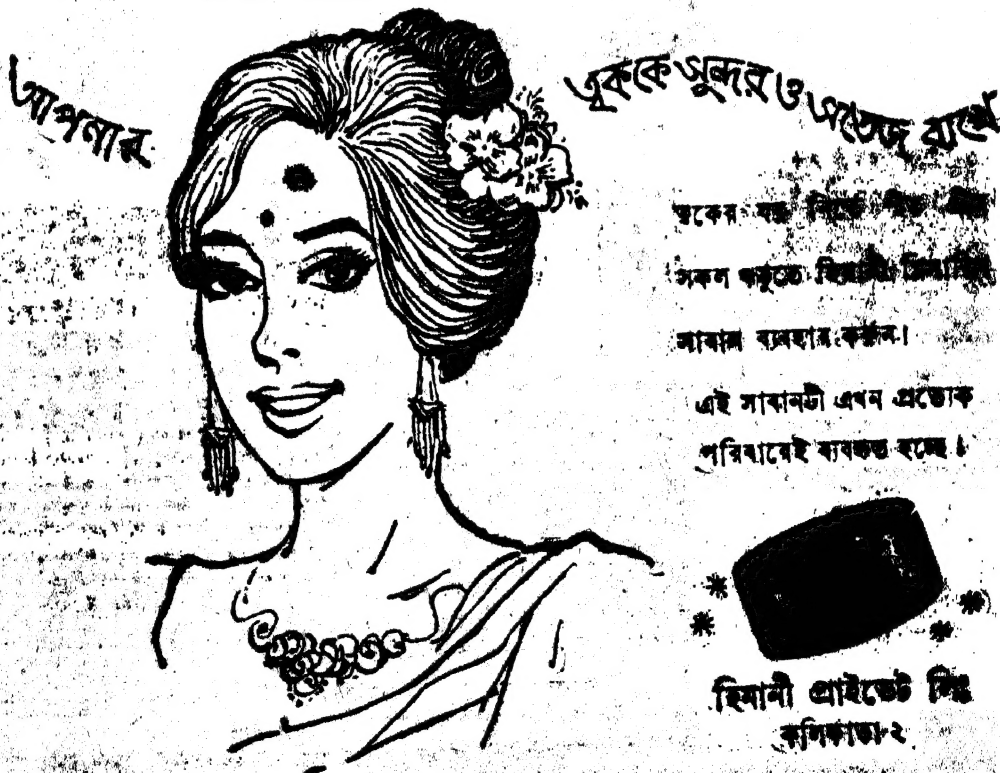 আপনার ত্বককে সুন্দর ও সতেজ রাখে
ত্বকের যত্ন নিতে
সকল ঋতুতে হিমানী গ্লিসারিন
সাবান ব্যবহার করুন।
এই সাবানটী এখন প্রত্যেক
পরিবারেই ব্যবহৃত হচ্ছে।
হিমানী প্রাইভেট লিঃ
কলিকাতা-২